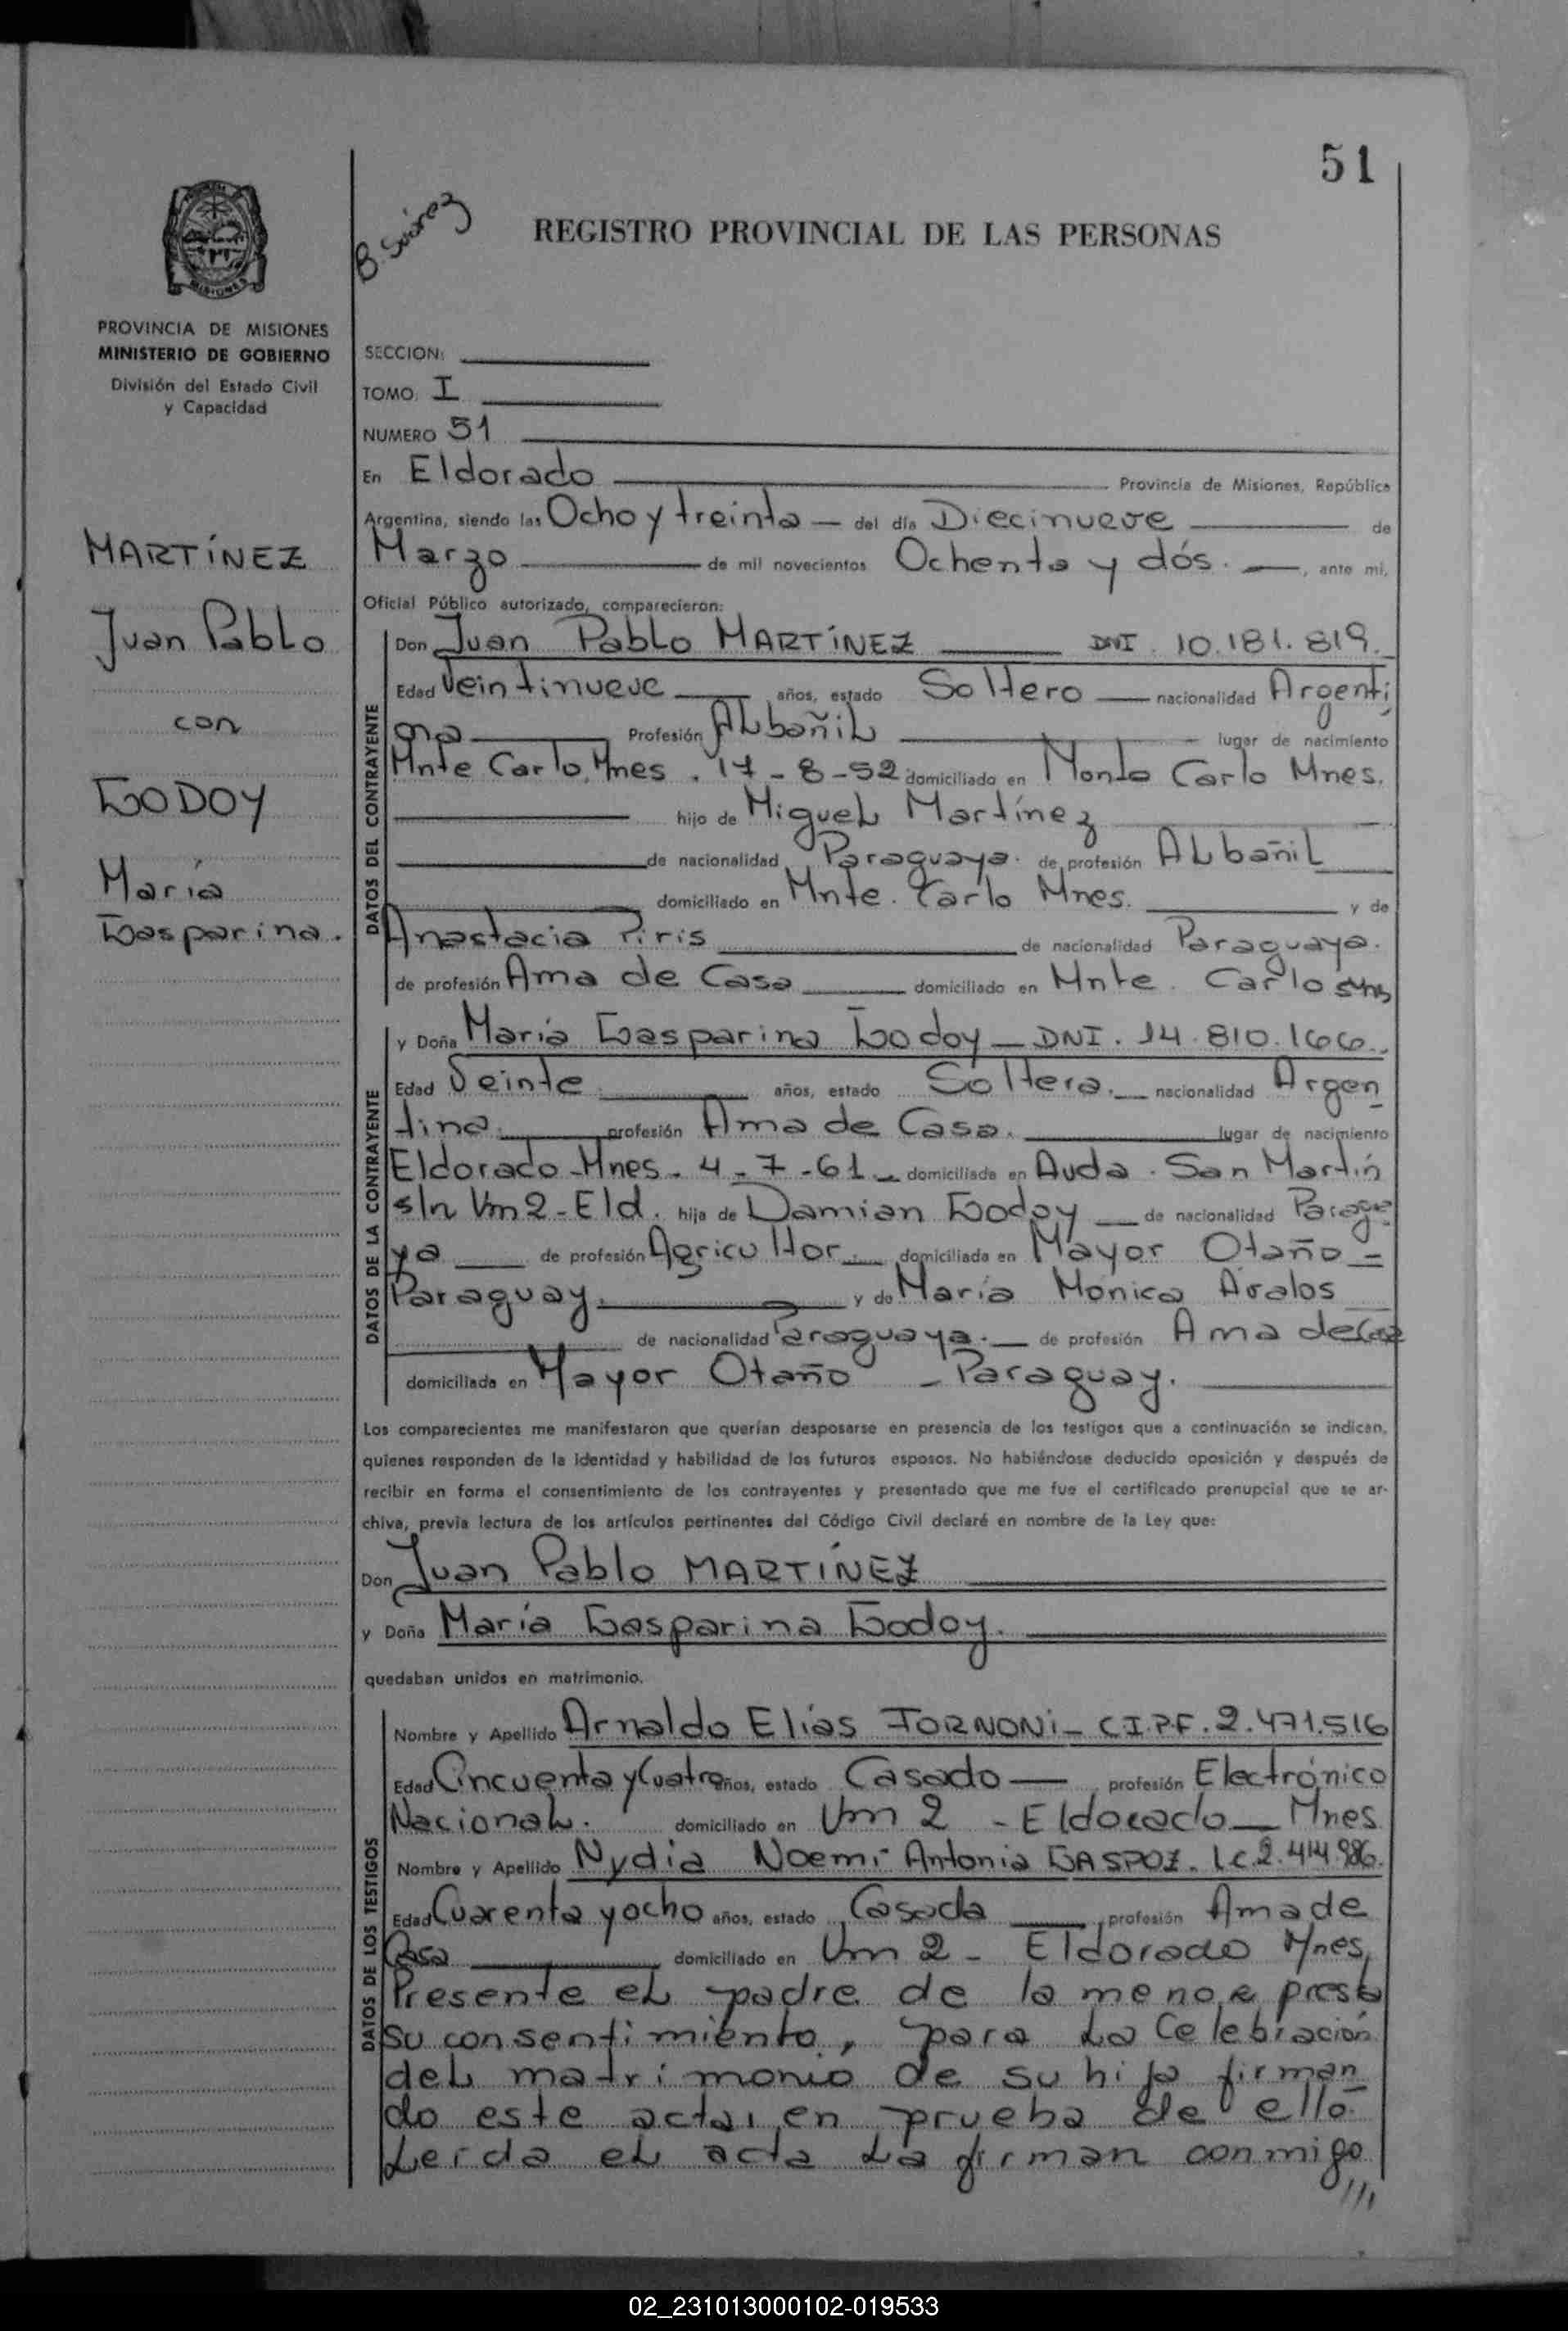 51
B. Suárez
REGISTRO PROVINCIAL DE LAS PERSONAS
MISIONES
PROVINCIA DE MISIONES
MINISTERIO DE GOBIERNO
División del Estado Civil
y Capacidad
MARTÍNEZ
Juan Pablo
con
GODOY
María
Gasparina.
SECCION:
TOMO: I
NUMERO 51
En Eldorado Provincia de Misiones, República
Argentina, siendo las Ocho y treinta — del día Diecinueve de
Marzo de mil novecientos Ochenta y dós. —, ante mi,
Oficial Público autorizado, comparecieron:
DATOS DEL CONTRAYENTE
Don Juan Pablo MARTÍNEZ DNI. 10.181.819.
Edad Veintinueve años, estado Soltero — nacionalidad Argenti
na Profesión ALbañiL lugar de nacimiento
Mnte Carlo, Mnes. 17-8-52 domiciliado en Monte Carlo Mnes.
hijo de MigueL Martínez
de nacionalidad Paraguaya. de profesión ALbañiL
domiciliado en Mnte. Carlo Mnes. y de
Anastacia Piris de nacionalidad Paraguaya.
de profesión Ama de Casa domiciliado en Mnte. Carlo
DATOS DE LA CONTRAYENTE
y Doña María Gasparina Godoy — DNI. 14.810.166.
Edad Veinte años, estado Soltera. nacionalidad Argen
tina. profesión Ama de Casa. lugar de nacimiento
Eldorado-Mnes. 4-7-61 domiciliada en Avda. San Martín
s/n Km 2-Eld. hija de Damian Godoy — de nacionalidad Paragua
ya de profesión Agricultor. domiciliada en Mayor Otaño =
Paraguay. y de María Mónica Avalos
de nacionalidad Paraguaya. — de profesión Ama de Casa
domiciliada en Mayor Otaño - Paraguay.
Los comparecientes me manifestaron que querían desposarse en presencia de los testigos que a continuación se indican,
quienes responden de la identidad y habilidad de los futuros esposos. No habiéndose deducido oposición y después de
recibir en forma el consentimiento de los contrayentes y presentado que me fue el certificado prenupcial que se ar-
chiva, previa lectura de los artículos pertinentes del Código Civil declaré en nombre de la Ley que:
Don Juan Pablo MARTÍNEZ
y Doña María Gasparina Godoy.
quedaban unidos en matrimonio.
DATOS DE LOS TESTIGOS
Nombre y Apellido Arnaldo Elías JORNONi - C.I.P.F. 2.471.516
Edad Cincuenta y Cuatro años, estado Casado — profesión Electrónico
NacionaL. domiciliado en Km 2 - Eldorado — Mnes
Nombre y Apellido Nydia Noemi Antonia GASPOZ. L.C. 2.414.986.
Edad Cuarenta y ocho años, estado Casada profesión Ama de
Casa domiciliado en Km 2 - Eldorado Mnes.
Presente eL padre de la menor presta
su consentimiento, para La Celebración
deL matrimonio de su hija firman
do este acta, en prueba de ello.
Leida eL acta La firman conmigo
///
02_231013000102-019533